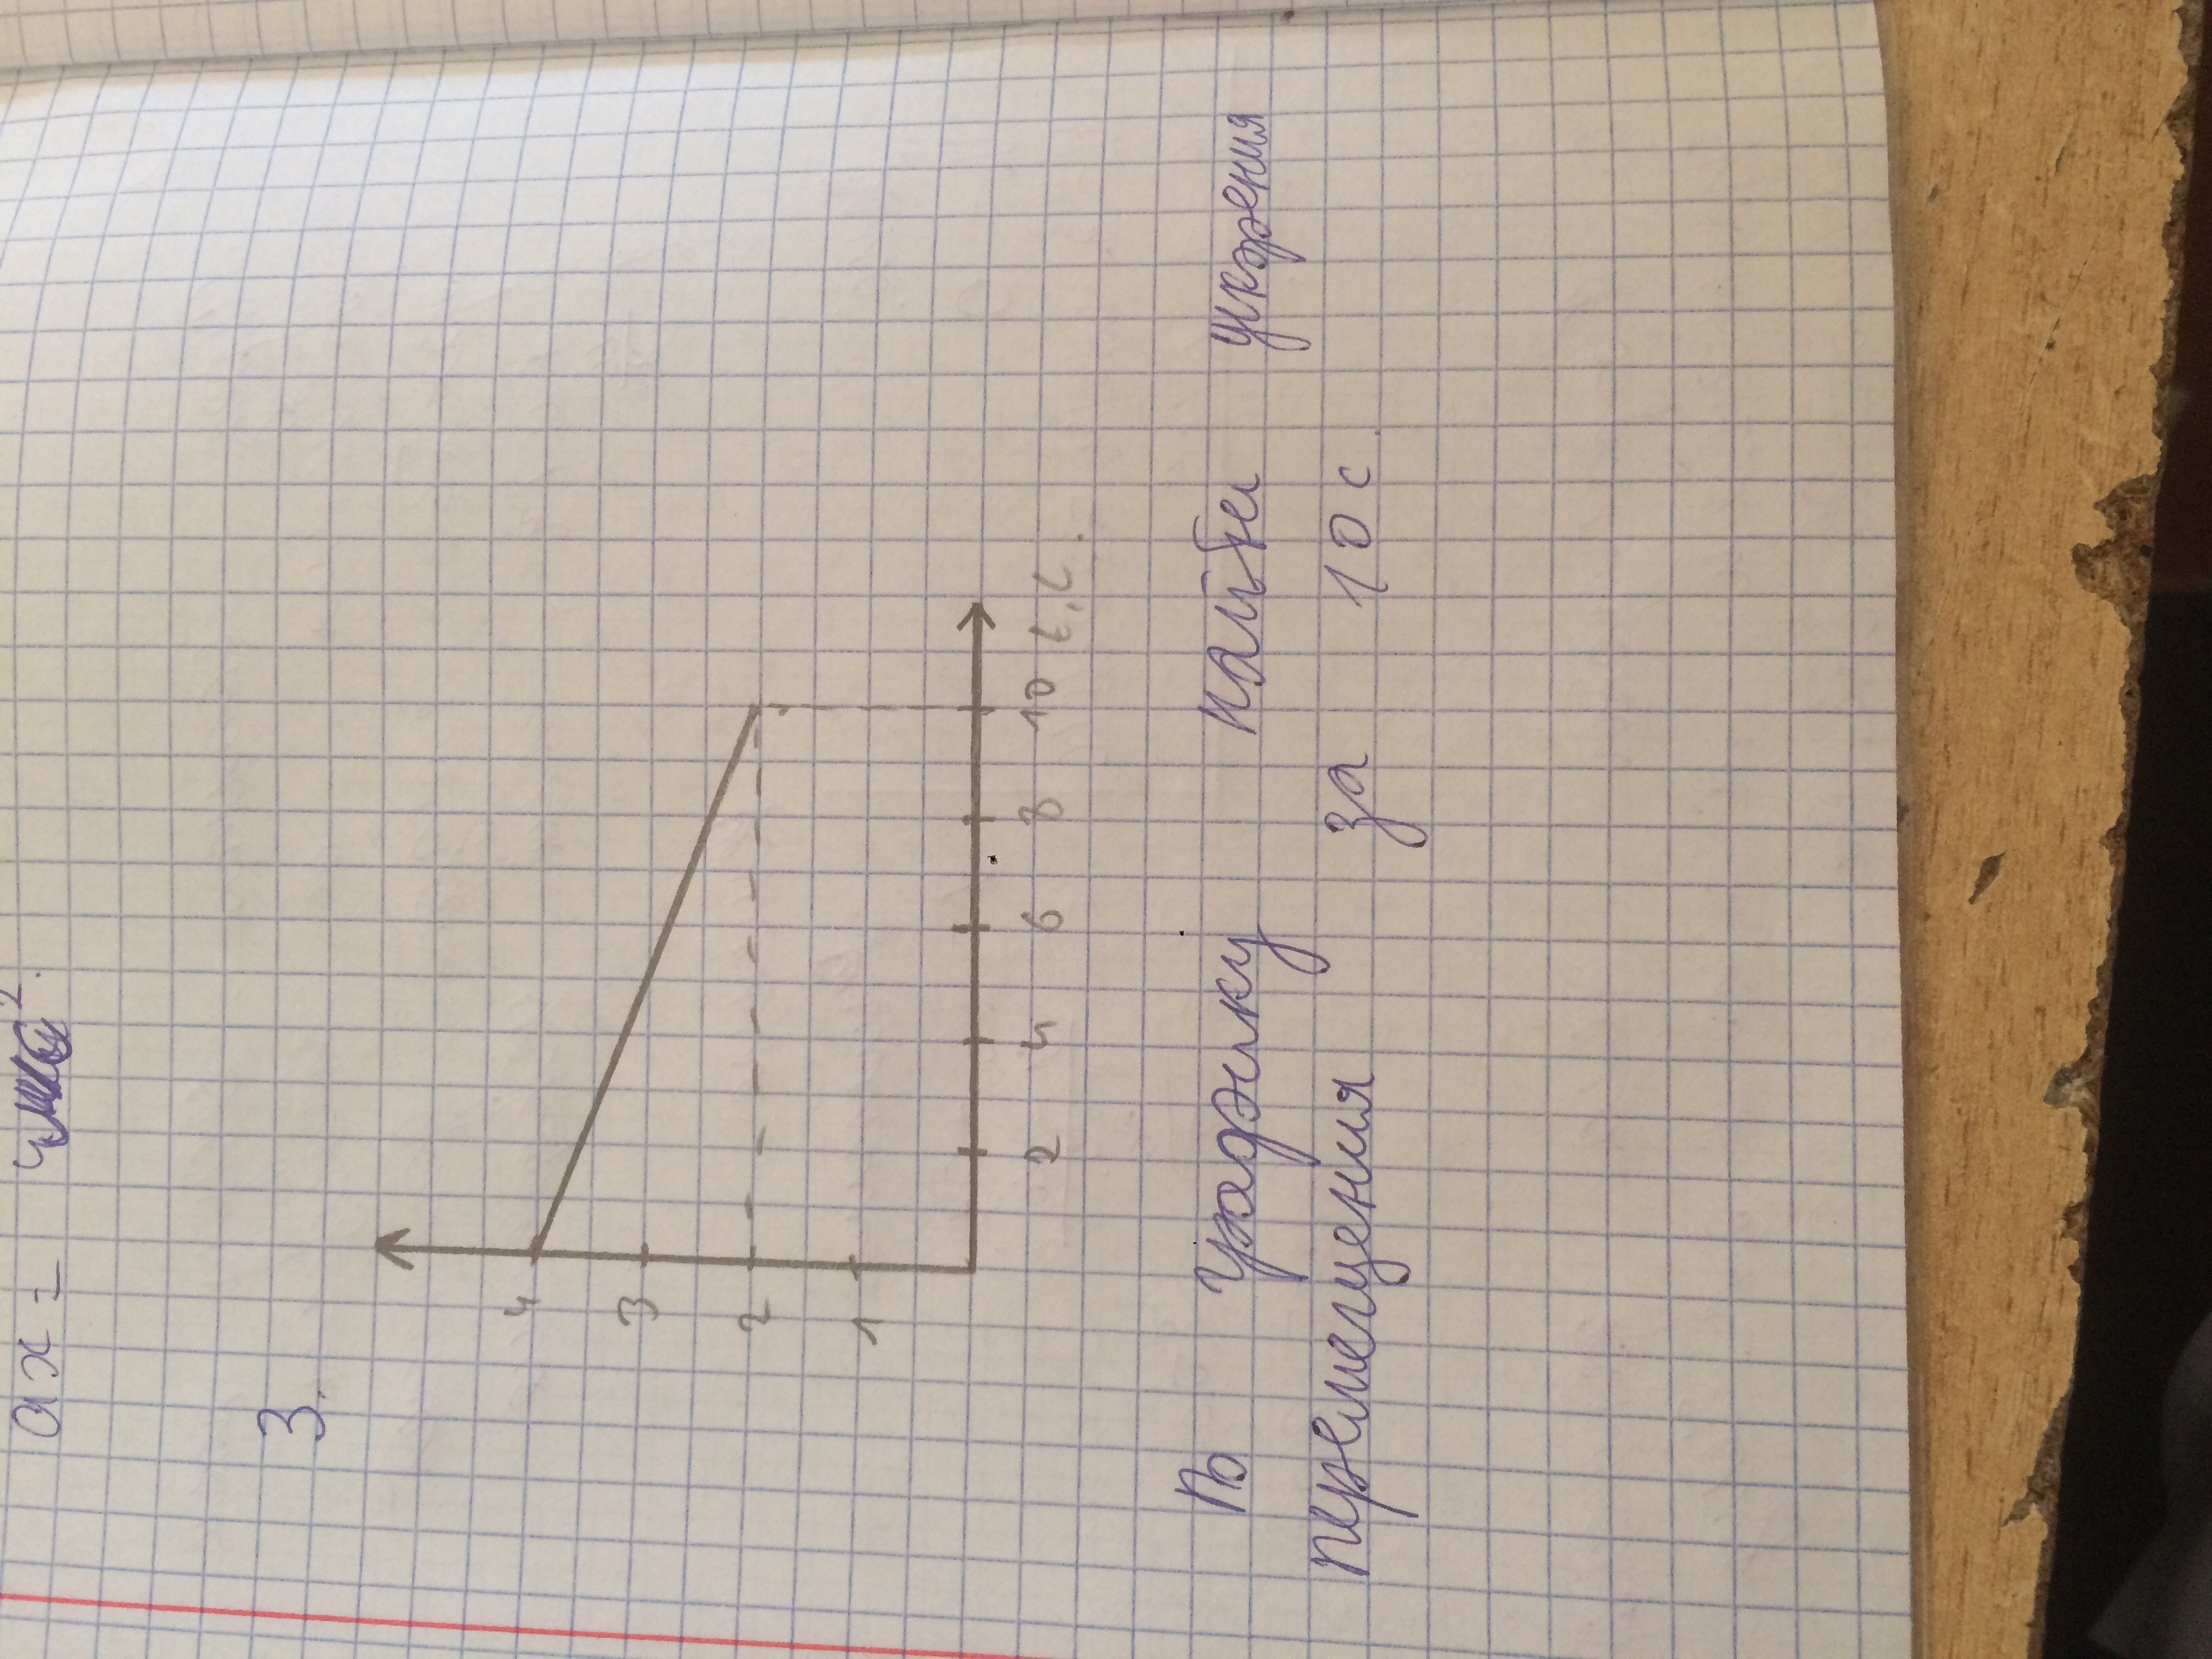 ax = 4 м/с²
3.
4
3
2
1
2 4 6 8 10 t, c.
По графику найти ускорения
перемещения за 10 с.